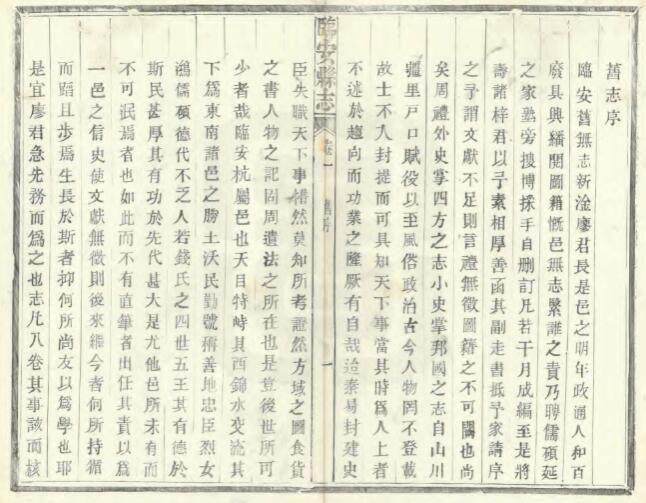 舊志序
臨安舊無志新淦廖君長是邑之明年政通人和百
廢具興繙閱圖籍慨邑無志繄誰之責乃聘儒碩延
之家塾旁搜博採手自刪訂凡若干月成編至是將
壽諸梓君以予素相厚善函其副走書抵予家請序
之予謂文獻不足則言禮無徵圖籍之不可闕也尚
矣周禮外史掌四方之志小史掌邦國之志自山川
疆里戶口賦役以至風俗政治古今人物罔不登載
故士不入封提而可具知天下事當其時為人上者
不迷於趨向而功業之隆厥有自哉迨秦易封建史
臨安縣志
卷一
舊序
一
臣失職天下事惜然莫知所考證然方域之圖食貨
之書人物之記固周遺法之所在也是豈後世所可
少者哉臨安杭屬邑也天目特峙其西錦水交流其
下為東南諸邑之勝土沃民勤號稱善地忠臣烈女
鴻儒碩德代不乏人若錢氏之四世五王其有德於
斯民甚厚其有功於先代甚大是尤他邑所未有而
不可泯焉者也如此而不有直筆者出任其責以為
一邑之信史使文獻無徵則後來繼今者何所持循
而蹈且步焉生長於斯者抑何所尚友以為學也耶
是宜廖君急先務而為之也志凡八卷其事該而核